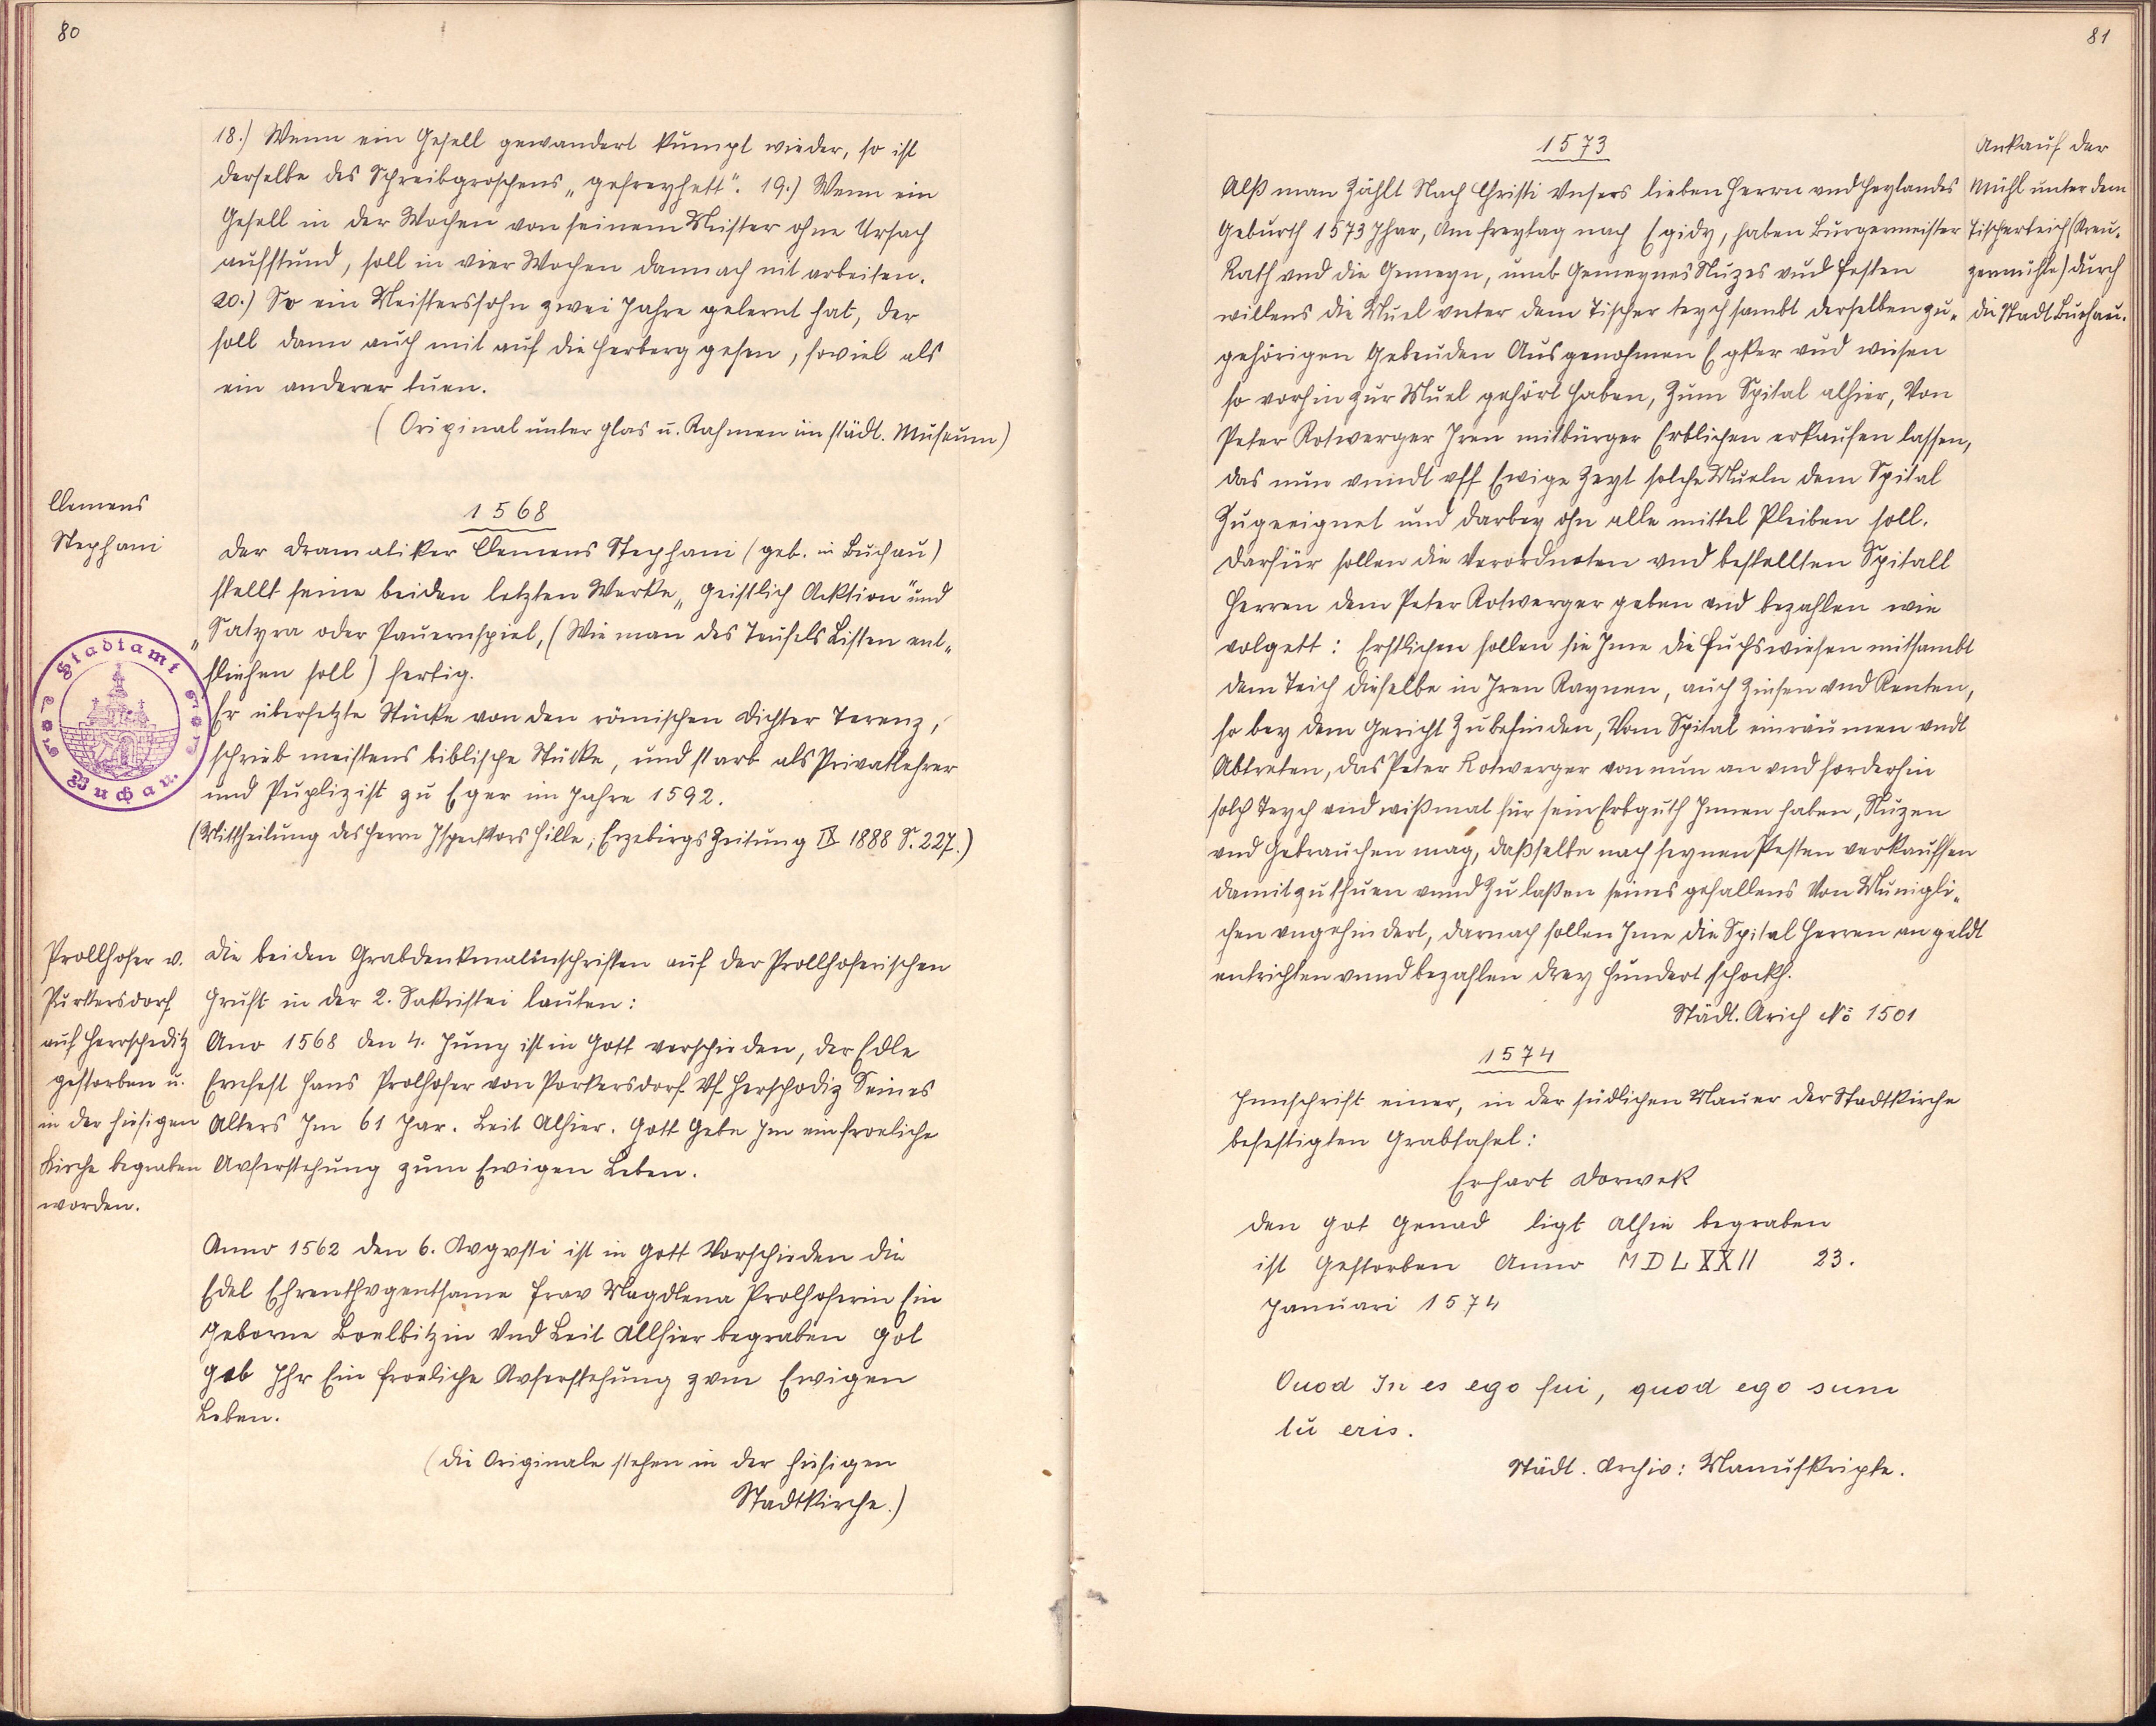 80
18.) Wenn ein Gesell gewandert kumpt wieder, so ist
derselbe des Schreibgroschens „gefreyhett". 19.) Wenn ein
Gesell in der Wochen von seinem Meister ohne Ursach
aufstund, soll in vier Wochen darnach nit arbeiten.
20.) So ein Meisterssohn zwei Jahre gelernt hat, der
soll dann auch mit auf die Herberg gehen, soviel als
ein anderer tuen.
(Original unter Glas u. Rahmen im städt. Museum)
Clemens
Stephani
1568
Der Dramatiker Clemens Stephani (geb. in Buchau)
stellt seine beiden letzten Werke „Geistlich Acktion" und
„Satyra oder Pauernspiel, (Wie man des Teufels Listen ent-
fliehen soll) fertig.
Er übersetzte Stücke von den römischen Dichter Terenz,
schrieb meistens biblische Stücke, und starb als Privatlehrer
und Puplizist zu Eger im Jahre 1592.
(Mittheilung des Herrn Ispecktors Hille; Erzebirgs Zeitung IX 1888 S. 227.)
Stadtamt
Buchau.
Prollhofer v.
Purkersdorf
auf Herrscheditz
gestorben u.
in der hiesigen
Kirche begraben
worden.
Die beiden Grabdenkmalinschriften auf der Prollhoferischen
Gruft in der 2. Sakristei lauten:
Ano 1568 den 4. Juny ist in Gott verschieden, der Edle
Ernfest Hans Prolhofer von Porkersdorf Vf Herschodiz Seines
Alters Im 61 Jar. Leit Alhier. Gott Gebe Im ein froeliche
Avferstehung zum Ewigen Leben.
Anno 1562 den 6. Avgvsti ist in Gott Vorschieden die
Edel Ehrenthvgentsame Frav Magdlena Prolhoferin Ein
Geborne Boelbitzin Vnd Leit Allhier begraben Got
Geb Ihr Ein froeliche Avferstehung zvm Ewigen
Leben.
(Die Originale stehen in der hiesigen
Stadtkirche.)
81
1573
Ankauf der
Mühl unter dem
Tischerteich (Kreu-
zermühle) durch
die Stadt Buchau.
Alß man Zählt Nach Christi Vnsers lieben Herrn vnd Heylandes
Geburth 1573 Jhar, Am freytag nach Egidy, haben Burgermeister
Rath vnd die Gemeyn, umb Gemeynes Nuzes vnd besten
willens die Muel vnter dem Tischer teych sambt derselben zu-
gehörigen Gebeuden Ausgenohmen Egker vnd wiesen
so vorhin zur Muel gehört haben, Zum Spital alhier, Von
Peter Rotwerger Iren mitbürger Erblichen erkaufen lassen,
das nun vnndt vff Ewige Zeyt solche Mueln dem Spital
Zugeeignet und darbey ohn alle mittel Pleiben soll.
Darfür sollen die Verordneten vnd bestellten Spitall
Herren dem Peter Rotwerger geben vnd bezahlen wie
volgett: Erstlichen sollen sie Ime die Fuchswiesen mitsambt
dem Teich dieselbe in Iren Raynen, auch Zinsen vnd Renten,
so bey dem Gericht Zubefinden, Vom Spital einräumen vndt
Abtreten, das Peter Rotwerger von nun an vnd forderhin
solch Teych vnd wißmat für sein Erbguth Innen haben, Nuzen
vnd Gebrauchen mag, daßselbe nach seynen Pesten verkauffen
damit zuthuen vnnd Zu laßen seines gefallens Von Munigli-
chen vngehindert, darnach sollen Ime die Spital Herren an geldt
entrichten vnnd bezahlen drey hundert schockh.
Städt. Arich No 1501
1574
Innschrift einer, in der südlichen Mauer der Stadtkirche
befestigten Grabtafel:
Erhart Dorwek
Den Got Genad ligt Alhie begraben
ist Gestorben Anno MDLXXII 23.
Januari 1574
Quod In es ego fui, quod ego sum
tu eris.
Städt. Archiv: Manuskripte.